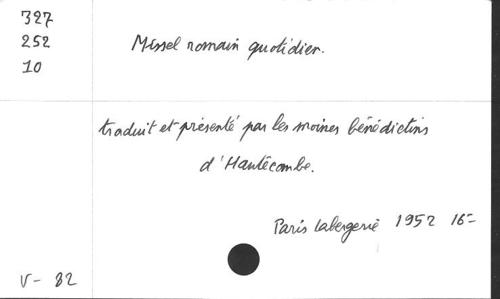 327
252
10
Missel romain quotidien.
traduit et présenté par les moines bénédictins
d'Hautecombe.
Paris Labergerie 1952 16=
V - 82